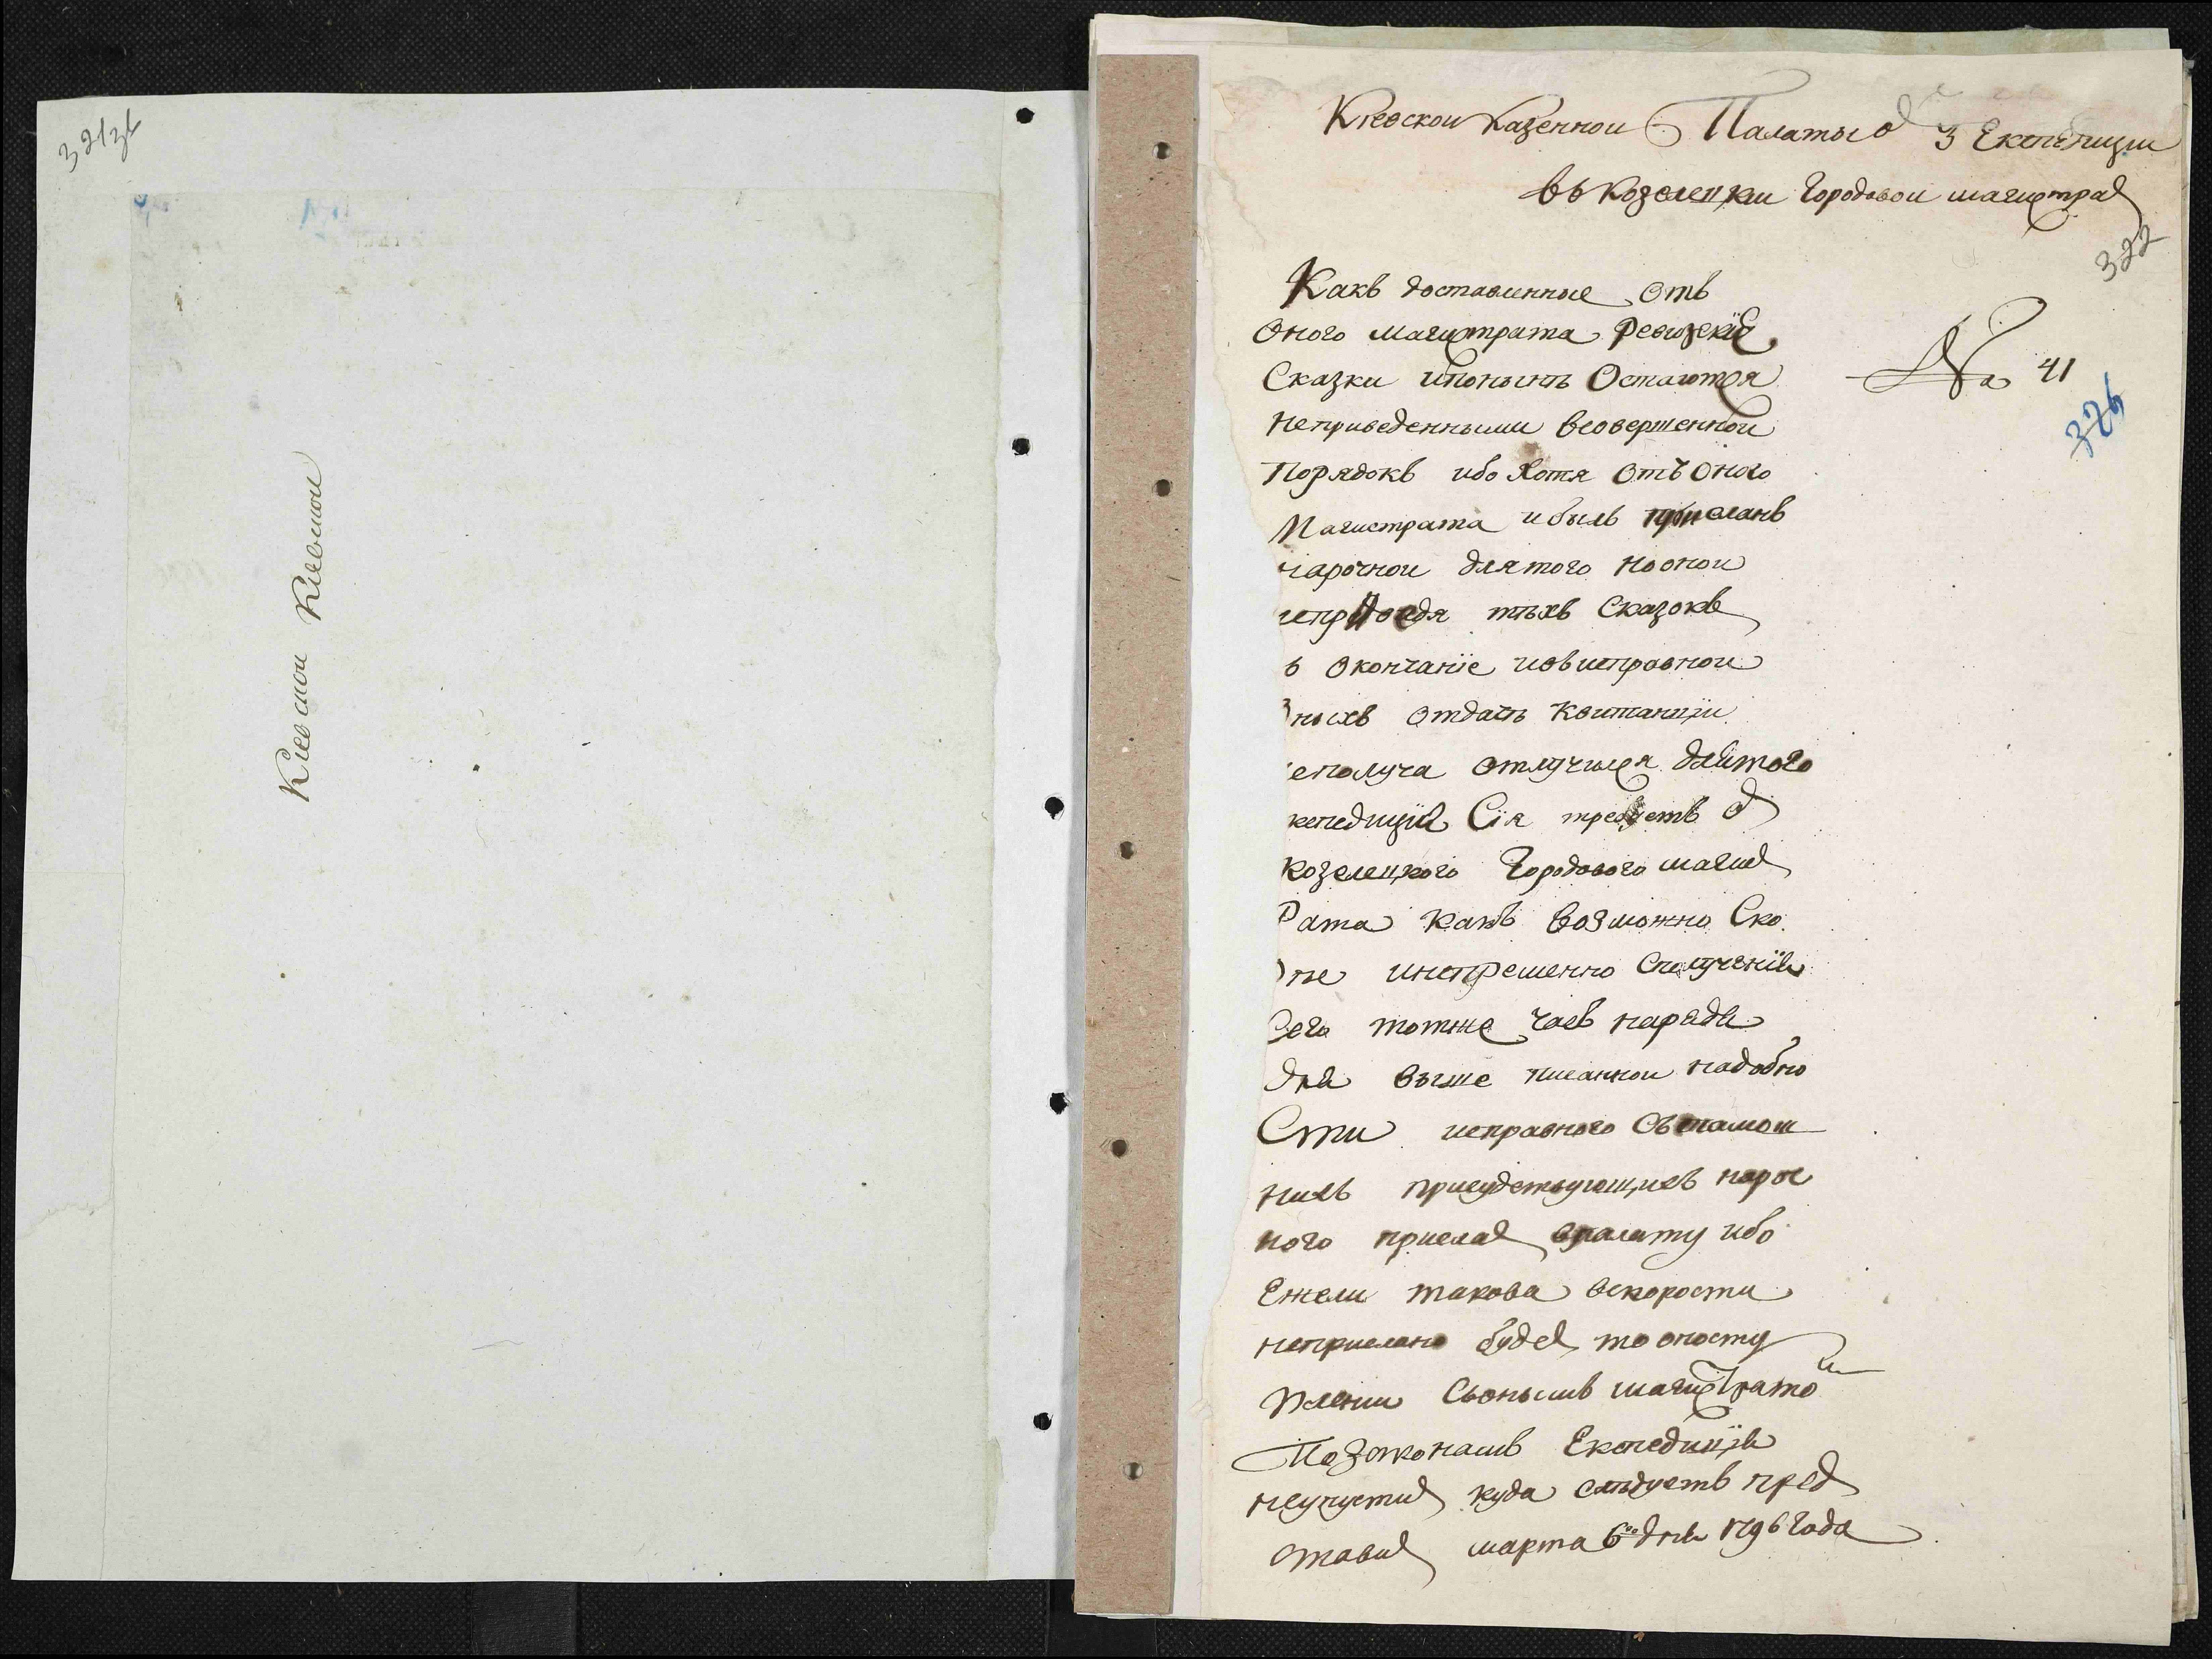 321зв
Кіевской Кіевской
Кіевской Казенной Палаты от 3 Експедиции
въ Козелецкий Городовой магистрат
322
Какъ доставленные отъ
Оного магистрата Ревизскіе
Сказки ипонынѣ Остаются
№ 41
326
неприведенными всовершенной
Порядокъ ибо Хотя Отъ Оного
Магистрата ибылъ присланъ
нарочной длятого но оной
неприводя тѣхъ Сказокъ
въ Окончаніе ивъисправной
оныхъ отдать Квитанціи
неполуча отлучился длятого
кспедиція Сія требуетъ от
Козелецкого Городового магист
Рата какъ возможно Ско
рѣе инепременно Сполученія
Сего тотже часъ нарядя
Для выше писанной надобно
Сти исправного Объ тамош
нихъ присудствующихъ нароч
ного прислать впалату ибо
Ежели такова вскорости
неприслано будет то опосту
плении Сьонымъ магистратом
Позаконамъ Експедиція
неупустит куда слѣдуетъ пред
ставит марта 6го дня 1796 Года